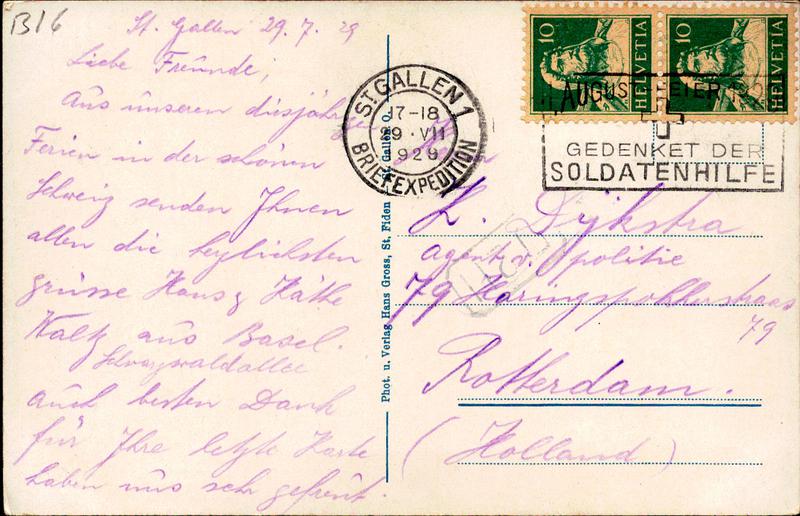 B16
St. Gallen 29.7.29
Liebe Freunde,
Aus unseren diesjährigen
Ferien in der schönen
Schweiz senden Ihnen
allen die herzlichsten
grüsse Hans & Käthe
Waltz aus Basel.
Schwarzwaldallee
auch besten Dank
für Ihre letzte Karte
haben uns sehr gefreut.
Phot. u. Verlag Hans Gross, St. Fiden St. Gallen O.
ST GALLEN 1
17-18
29·VII
929
BRIEFEXPEDITION
10 HELVETIA
10 HELVETIA
AUGUST-FEIER
GEDENKET DER
SOLDATENHILFE
Dijkstra
agent v. politie
79
79
Rotterdam.
(Holland)